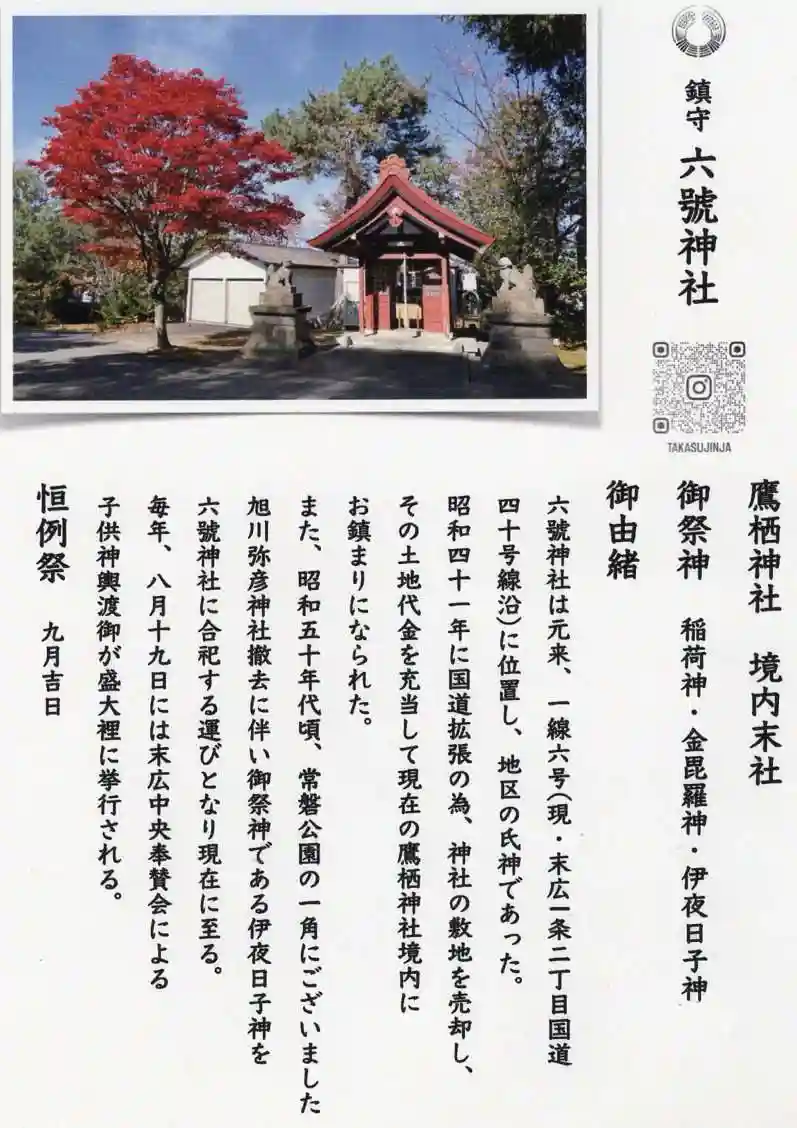 鎮守 六號神社
TAKASUJINJA
鷹栖神社 境内末社
御祭神 稲荷神・金毘羅神・伊夜日子神
御由緒
六號神社は元来、一線六号(現・末広一条二丁目国道
四十号線沿)に位置し、地区の氏神であった。
昭和四十一年に国道拡張の為、神社の敷地を売却し、
その土地代金を充当して現在の鷹栖神社境内に
お鎮まりになられた。
また、昭和五十年代頃、常磐公園の一角にございました
旭川弥彦神社撤去に伴い御祭神である伊夜日子神を
六號神社に合祀する運びとなり現在に至る。
毎年、八月十九日には末広中央奉賛会による
子供神輿渡御が盛大裡に挙行される。
恒例祭 九月吉日